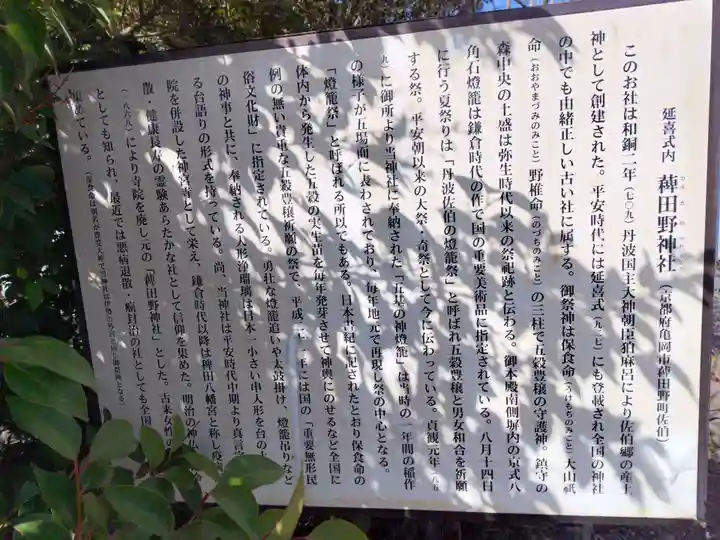 延喜式内 薭田野神社 (京都府亀岡市薭田野町佐伯)
このお社は和銅二年(七〇九)丹波国主大神朝臣狛麻呂により佐伯郷の産土
神として創建された。平安時代には延喜式(九二七)にも登載され全国の神社
の中でも由緒正しい古い社に属する。御祭神は保食命(うけもちのみこと)大山祇
命(おおやまつみのみこと)野椎命(のづちのみこと)の三柱で五穀豊穣の守護神。鎮守の
森中央の土盛は弥生時代以来の祭祀跡と伝わる。御本殿南側塀内の京式八
角石燈籠は鎌倉時代の作で国の重要美術品に指定されている。八月十四日
に行う夏祭りは「丹波佐伯の燈籠祭」と呼ばれ五穀豊穣と男女和合を祈願
する祭。平安朝以来の大祭・奇祭として今に伝わっている。貞観元年(八五
九)に御所より当神社に奉納された「五基の神燈籠」は当時の一年間の稲作
の様子が五場面に表わされており、毎年地元で再現し祭の中心となる。
「燈籠祭」と呼ばれる所以でもある。日本書紀に記されたとおり保食命の
体内から発生した五穀の実生苗を毎年発芽させて神輿にのせるなど全国に
例の無い貴重な五穀豊穣祈願の祭で、平成二十一年には国の「重要無形民
俗文化財」に指定されている。勇壮な燈籠追いや太鼓掛け、燈籠吊りなど
の神事と共に、奉納される人形浄瑠璃は日本一小さい串人形を台の上
る台語りの形式を持っている。尚、当神社は平安時代中期より真言
院を併設した神宮寺として栄え、鎌倉時代以降は稗田八幡宮と称し疫
散・健康長寿の霊験あらたかな社として信仰を集めた。明治の神
(一八六八)により寺院を廃し元の「薭田野神社」とした。古来女
としても知られ、最近では悪病退散・癪封治の社としても全国
めている。